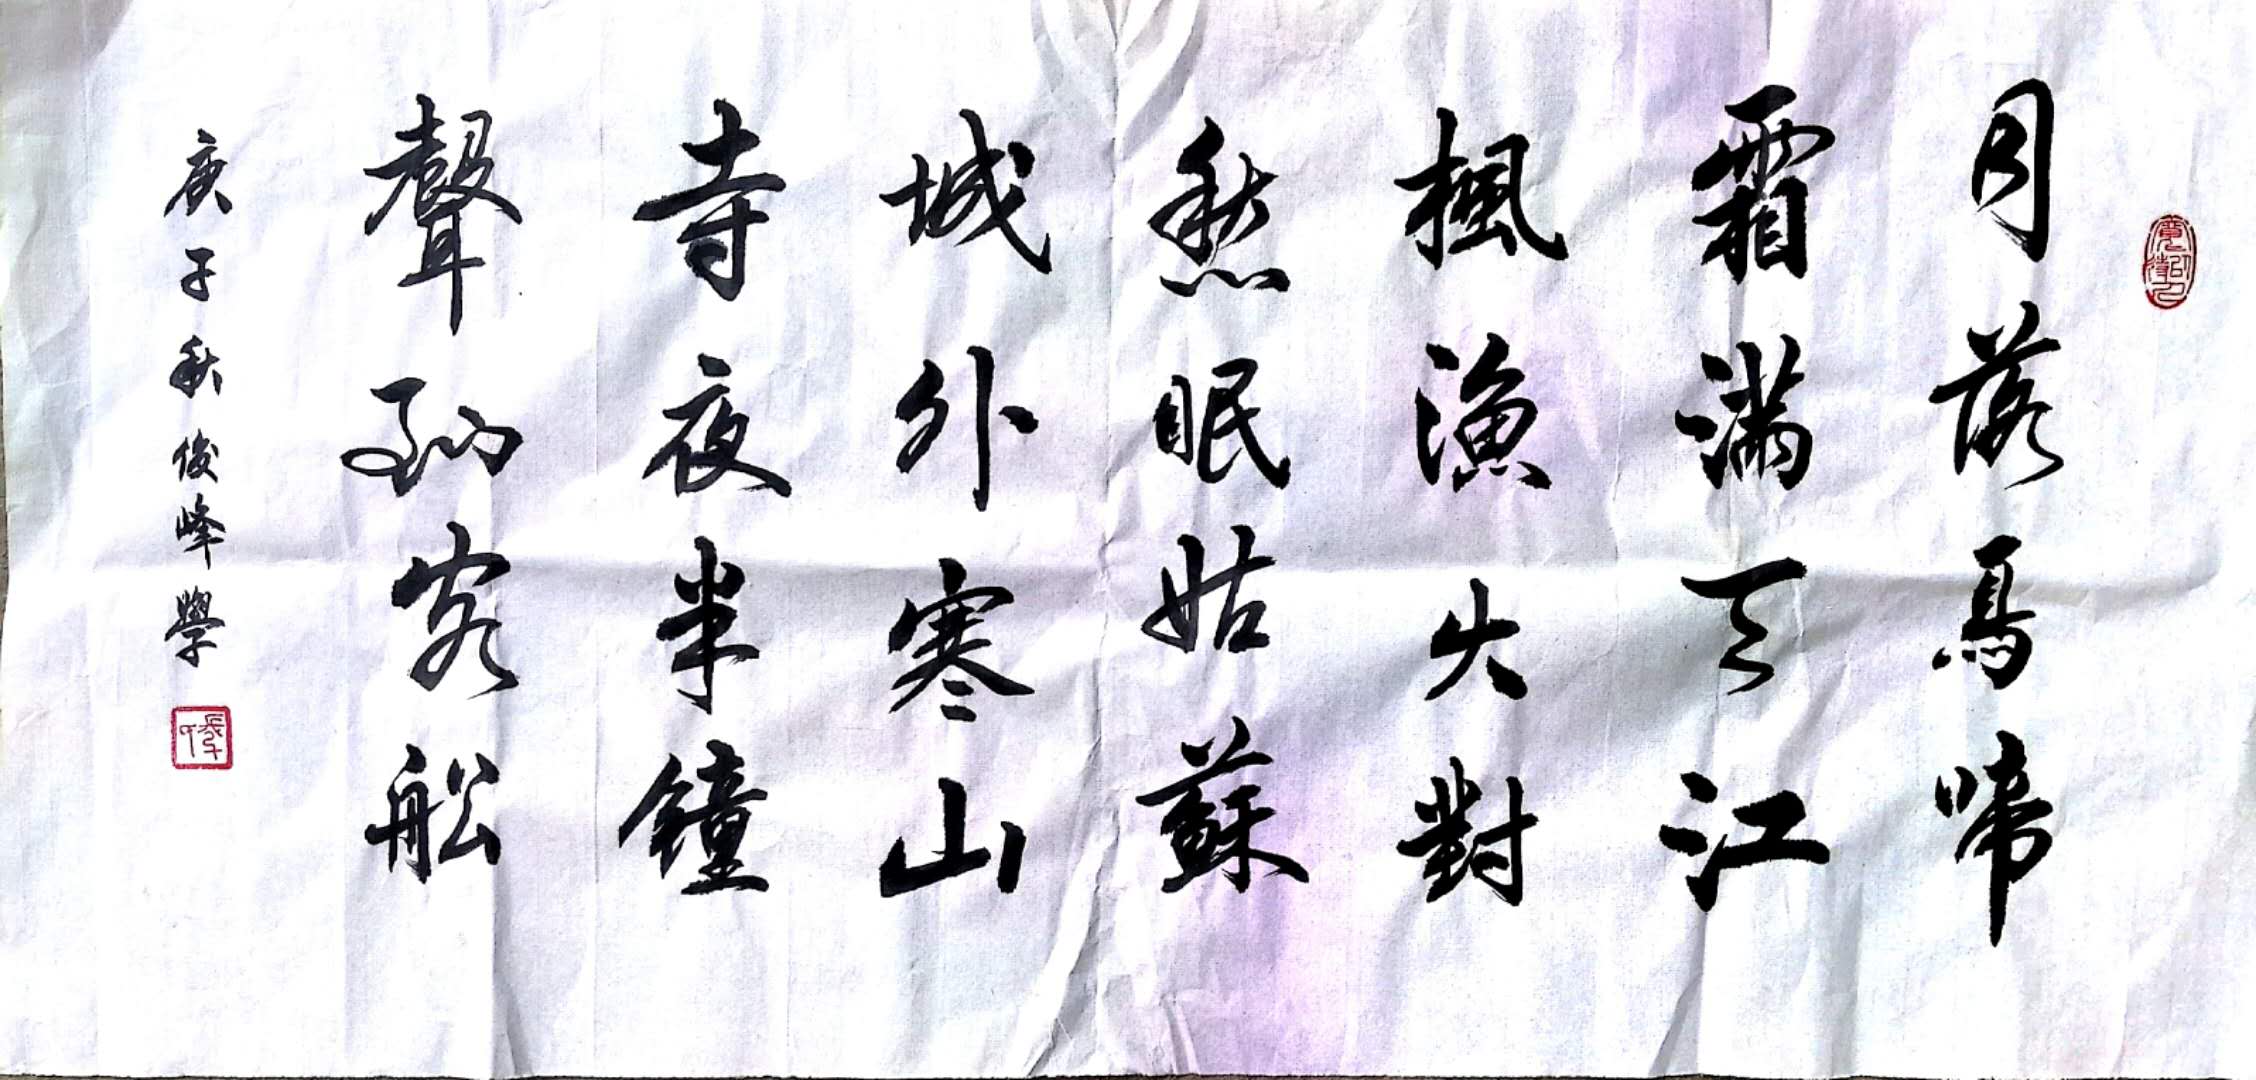 月落烏啼
霜滿天江
楓漁火對
愁眠姑蘇
城外寒山
寺夜半鐘
聲孤客船
庚子秋俊峰學